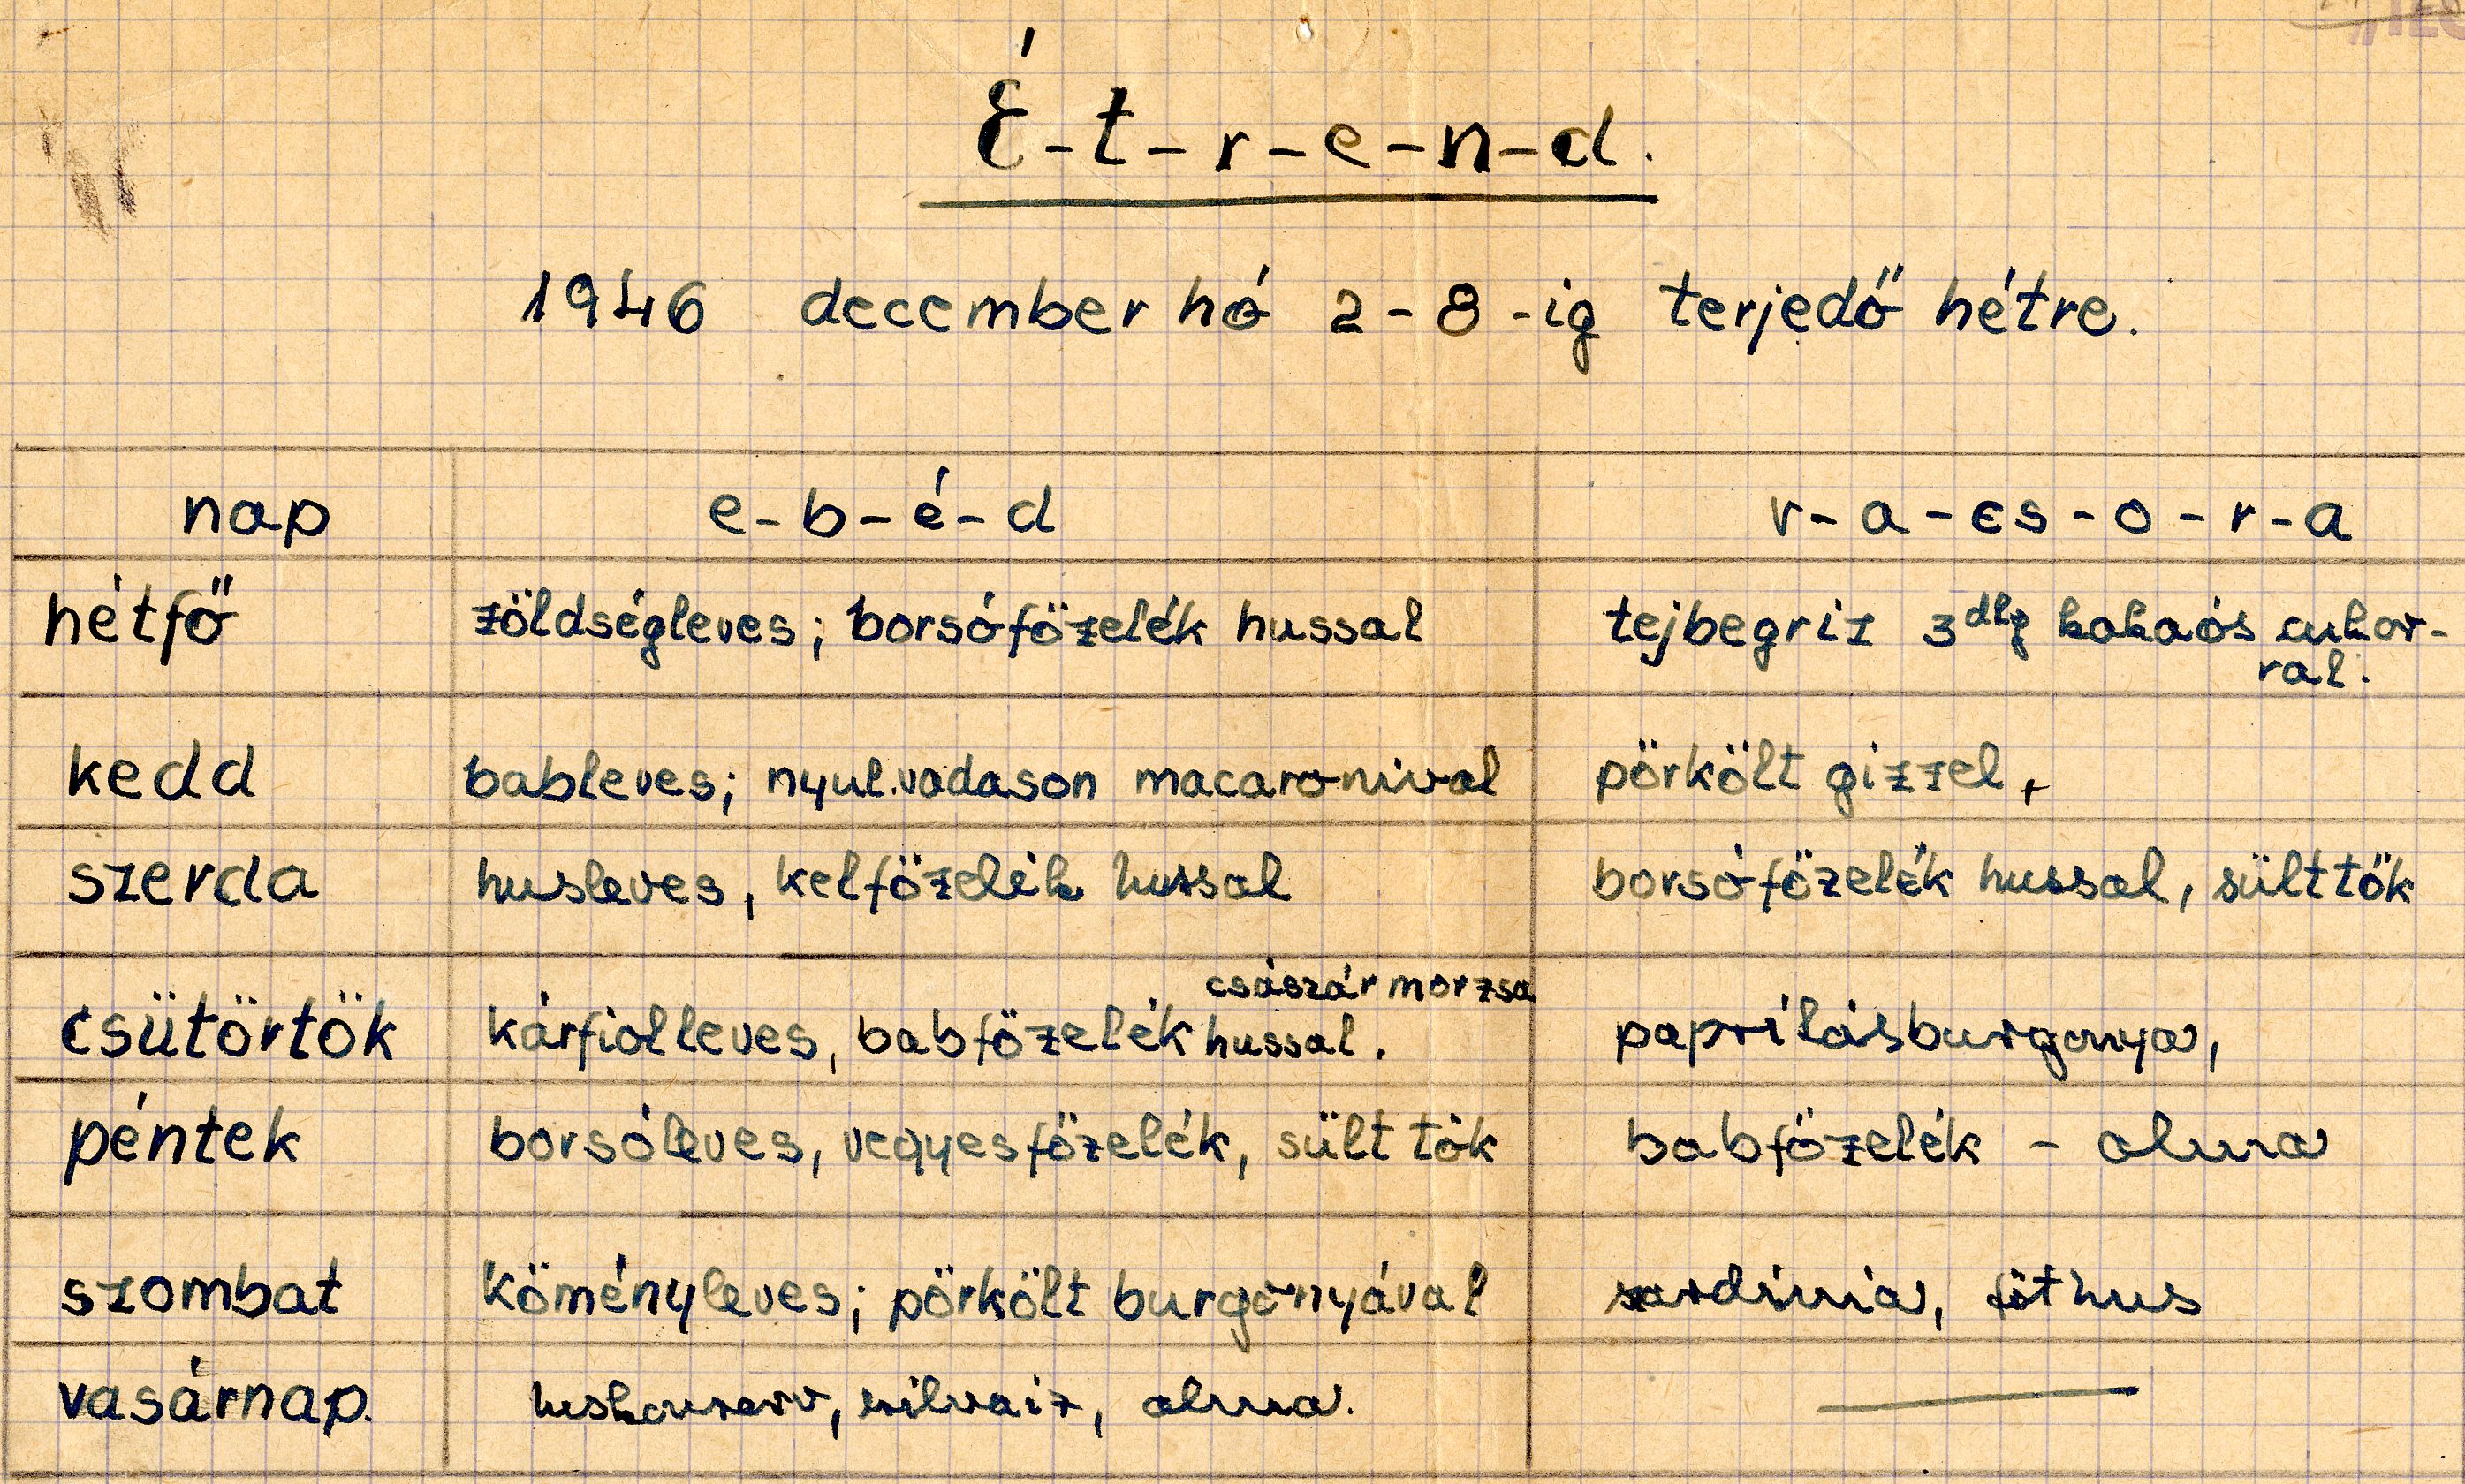 É-t-r-e-n-d.
1946 december hó 2-8-ig terjedő hétre.
nap e-b-é-d v-a-cs-o-r-a
hétfő zöldségleves; borsófőzelék hussal tejbegriz 3 dlg kakaós cukor-
ral.
kedd bableves; nyul.vadason macaronival pörkölt gizzel,
szerda husleves, kelfőzelék hussal borsófőzelék hussal, sülttök
császármorzsa
csütörtök kárfiolleves, babfőzelék hussal. paprikásburgonya,
péntek borsóleves, vegyesfőzelék, sült tök babfőzelék - alma
szombat köményleves; pörkölt burgonyával sardinia, főthus
vasárnap. huskonzerv, szilvaiz, alma.